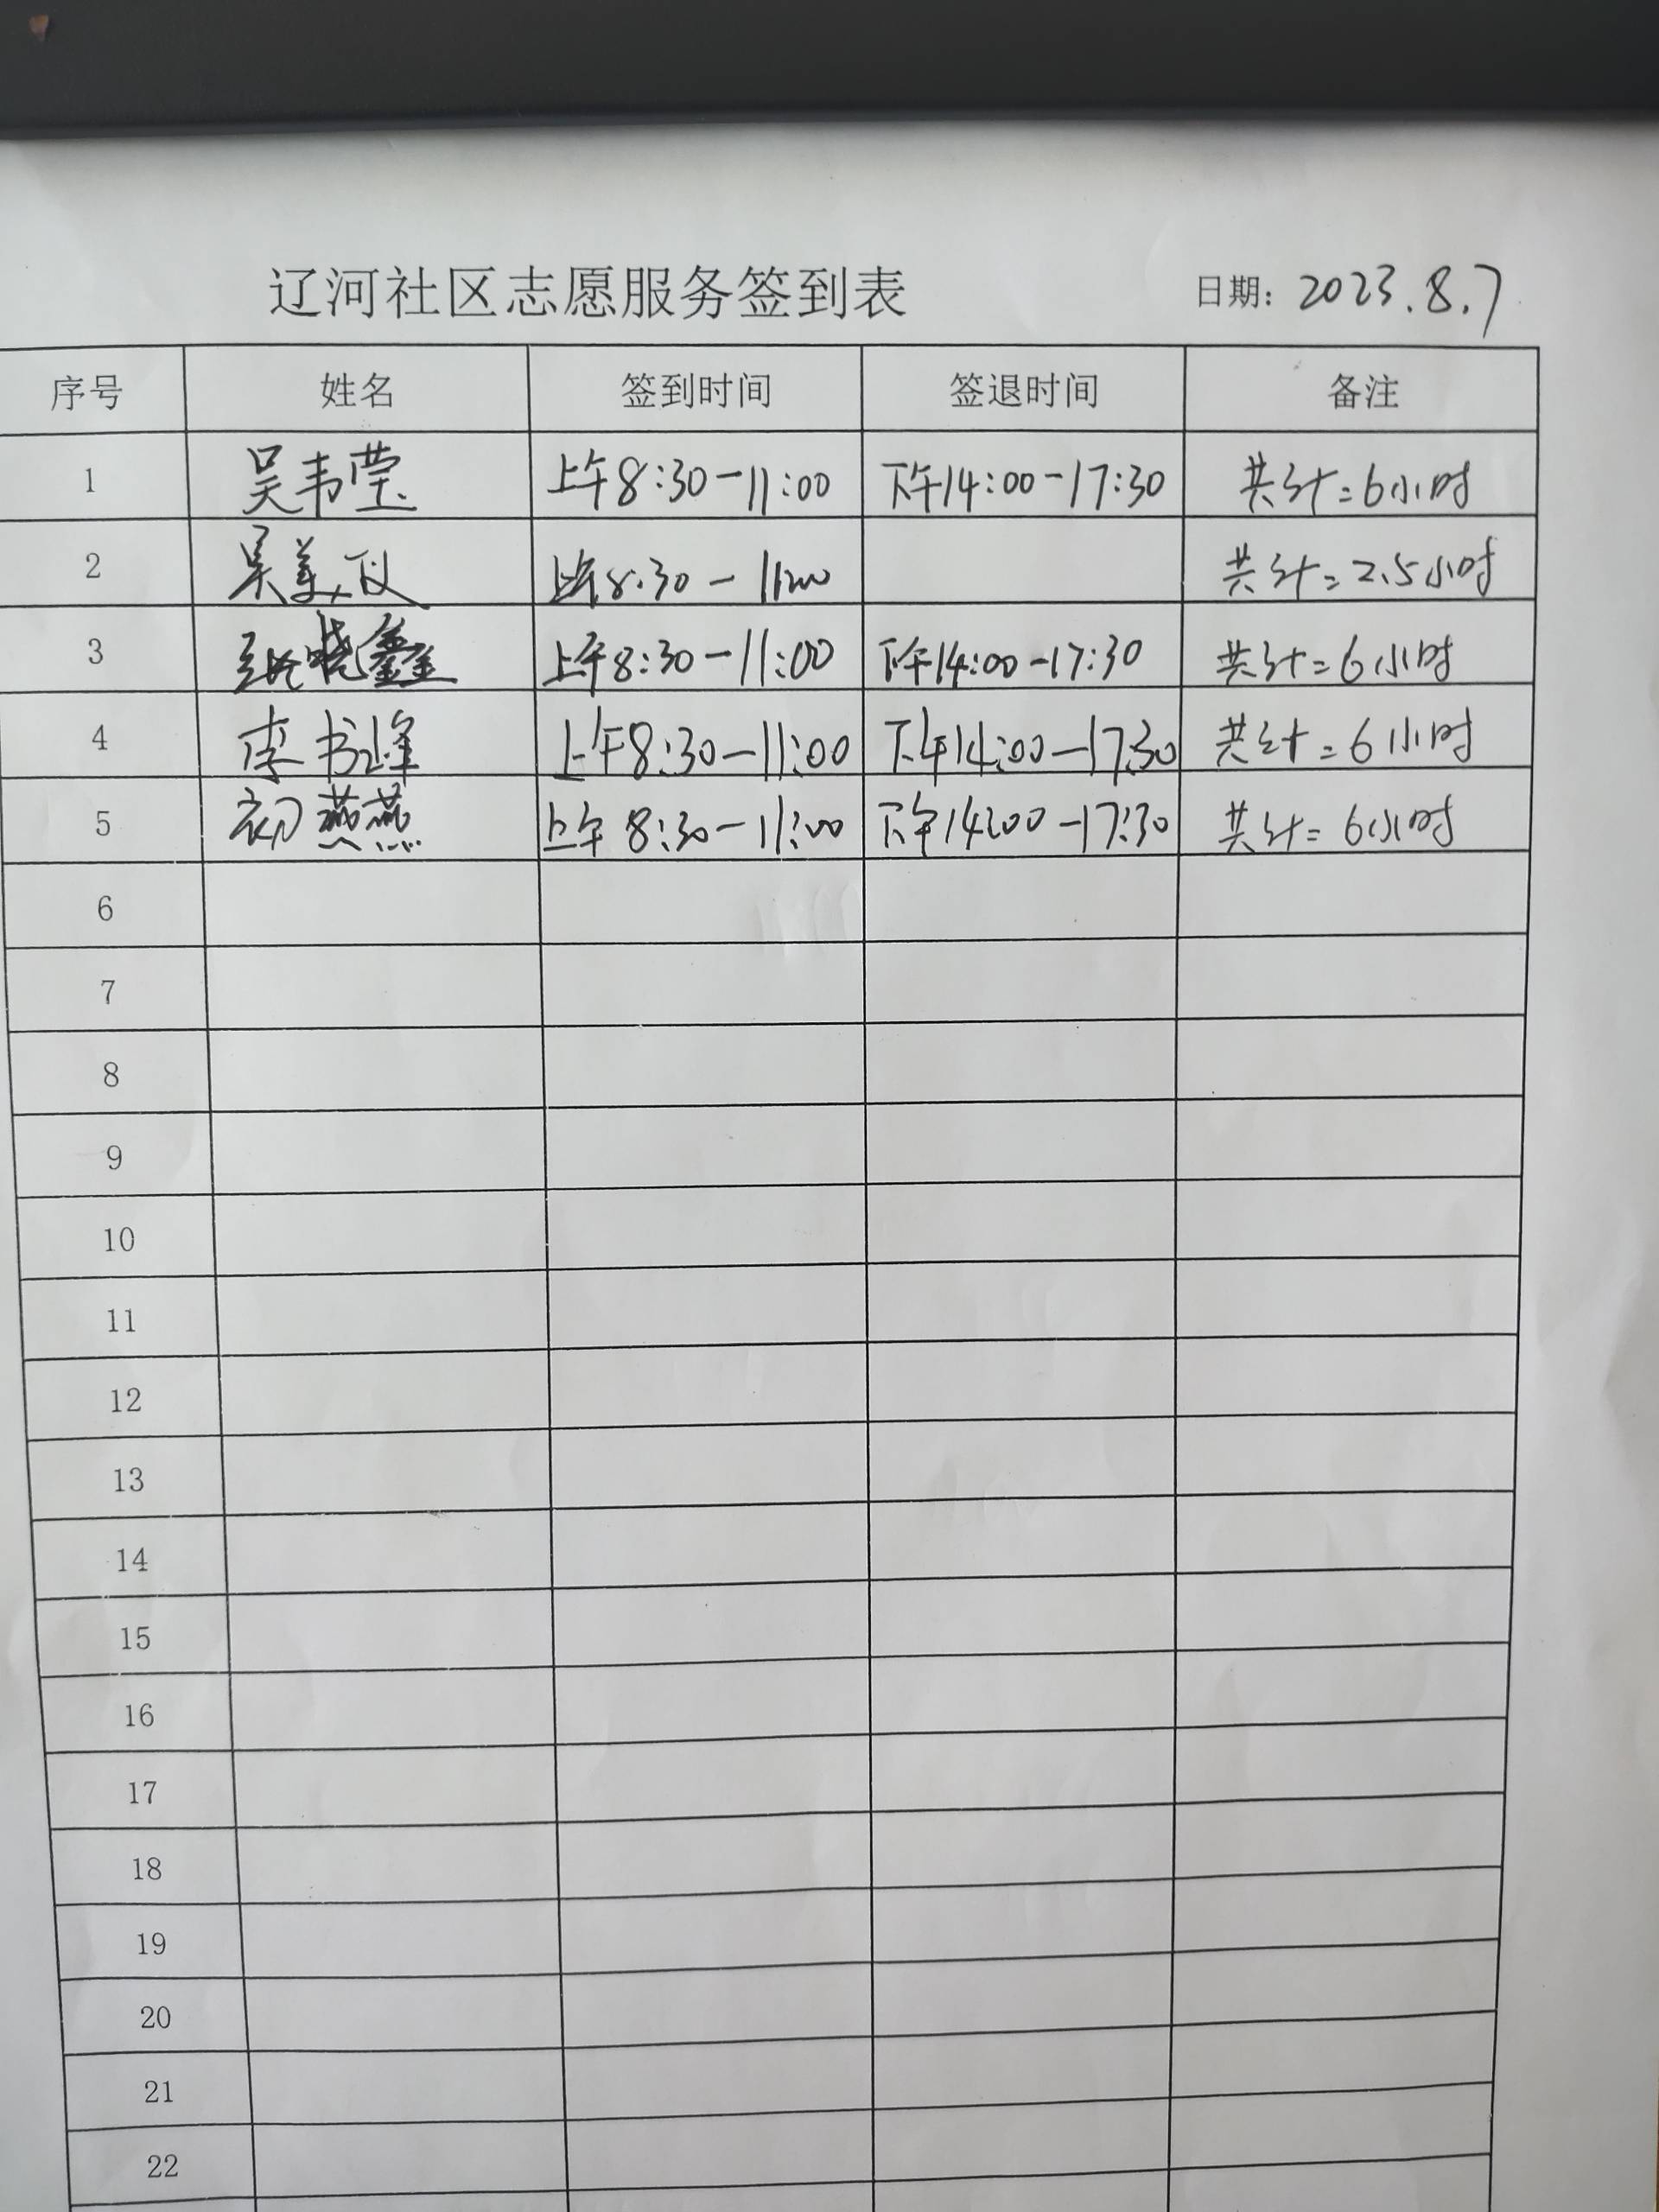 辽河社区志愿服务签到表 日期：2023.8.7
序号 姓名 签到时间 签退时间 备注
1 吴韦莹 上午8:30-11:00 下午14:00-17:30 共计=6小时
2 吴美 上午8:30-11:00 共计=2.5小时
3 晓鑫 上午8:30-11:00 下午14:00-17:30 共计=6小时
4 李书峰 上午8:30-11:00 下午14:00-17:30 共计=6小时
5 初燕燕 上午8:30-11:00 下午14:00-17:30 共计=6小时
6
7
8
9
10
11
12
13
14
15
16
17
18
19
20
21
22